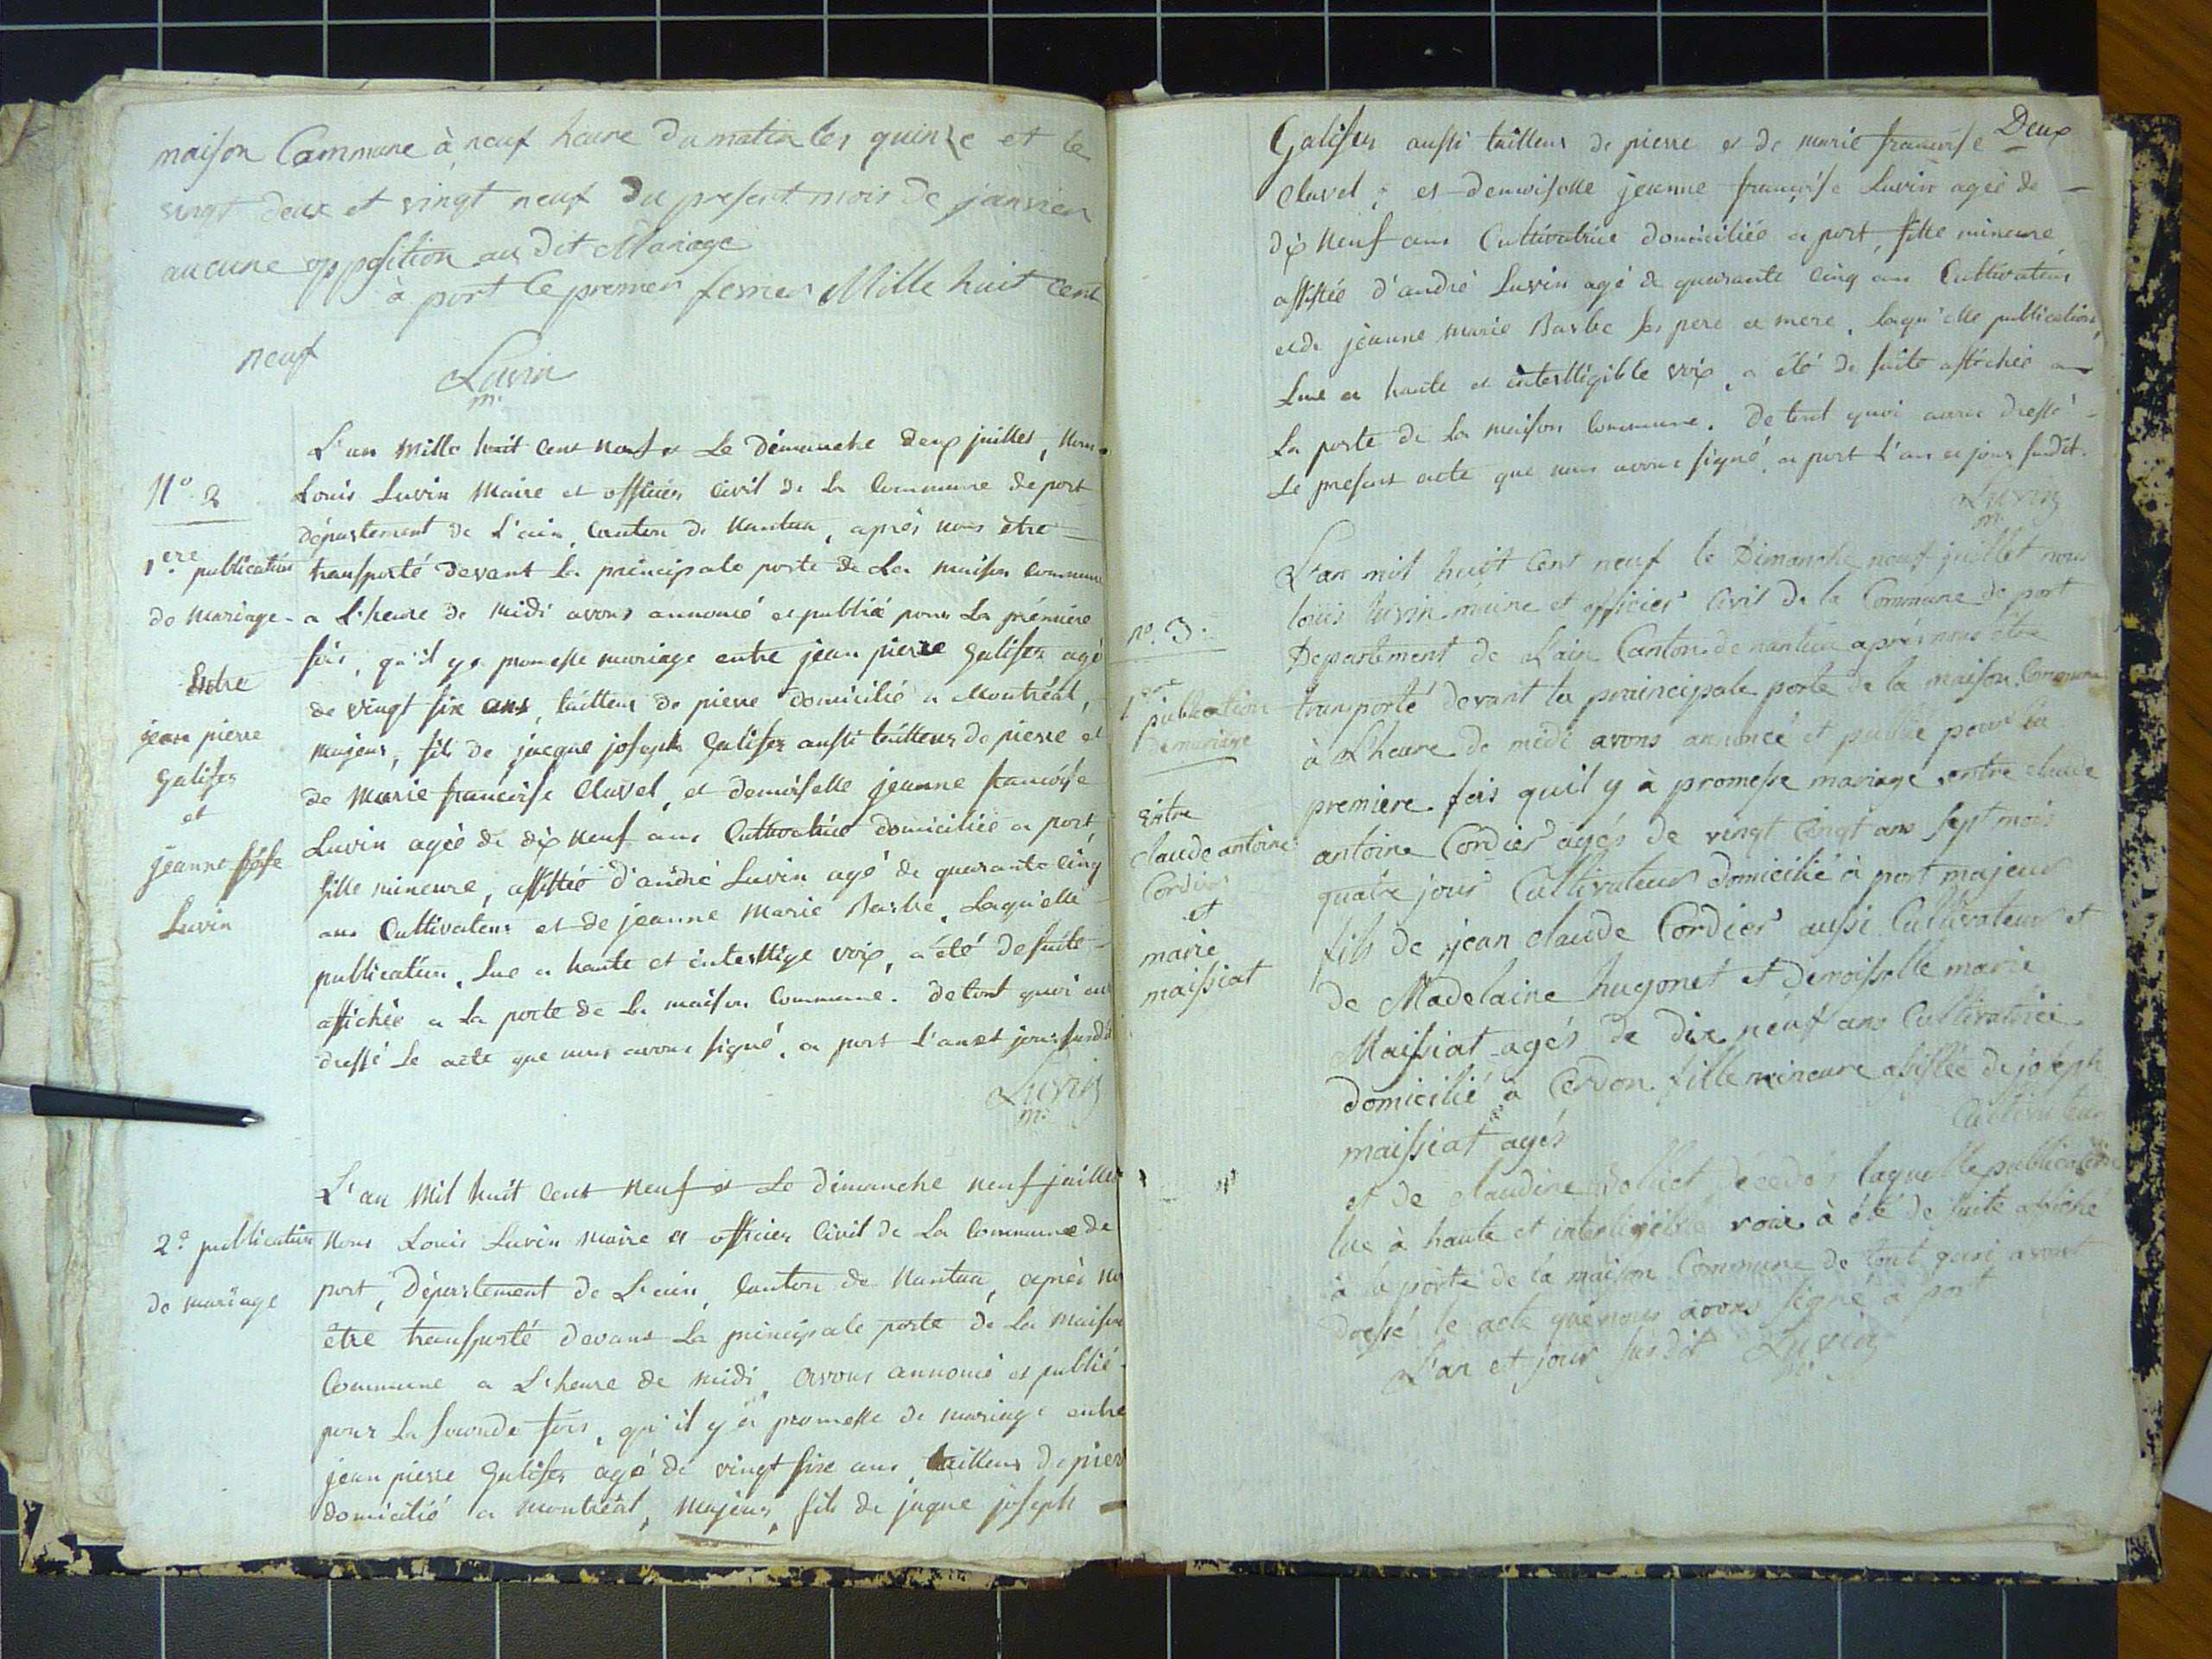 maison Commune à neuf heure du matin les quinze et le
vingt deux et vingt neuf du present mois de janvier
aucune opposition au dit Mariage
à port le premier fevrier Mille huit cent
neuf
Luvin
m.
N° 2
1ere publication
de mariage
Entre
jean pierre
Galifer
et
jeanne fse
Luvin
L'an Mille huit cent neuf et Le Démanche deux juillet, Nous
Louis Luvin Maire et officier Civil de La Commune de port
département de L'ain, Canton de Nantua, après nous être
transporté devant La principale porte de La maison Commune
a L'heure de Midi avons annoncé et publié pour La première
fois, qu'il y a promesse mariage entre jean pierre Galifer agé
de vingt six ans, tailleur de pierre domicilié a Montréal,
majeur, fils de jacque joseph Galifer aussi tailleur de pierre et
de Marie francoise Clavel, et demoiselle jeanne francoise
Luvin agée de dix neuf ans Cultivatrice domiciliée a port,
fille mineure, assistée d'andré Luvin agé de quarante cinq
ans Cultivateur et de jeanne Marie Barbe. Laqu'elle
publication, Lue a haute et intellige voix, a été de suite
affichée a La porte de La maison Commune. de tout quoi avons
dressé Le acte que nous avons signé, a port L'an et jour susdit
Luvin
m.
2e publication
de mariage
L'an Mil huit cent neuf et Le dimanche neuf juillet
Nous Louis Luvin maire et officier Civil de La Commune de
port, Département de L'ain, Canton de Nantua, après nous
être transporté devant La principale porte de La Maison
Commune a L'heure de midi, avons annoncé et publié
pour La seconde fois, qu'il y a promesse de mariage entre
jean pierre Galifer agé de vingt six ans, tailleur de pierre
domicilié a montréal, majeur, fils de jaque joseph
Deux
Galifer aussi tailleur de pierre et de marie francoise
Clavel; et demoiselle jeanne françoise Luvin agée de
dix neuf ans Cultivatrice domiciliée a port, fille mineure
assistée d'andré Luvin agé de quarante cinq ans Cultivateur
et de jeanne marie Barbe ses pere et mere. Laqu'elle publication,
Lue a haute et intelligible voix, a été de suite affichée a
La porte de La maison Commune. De tout quoi avons dressé
Le present acte que nous avons signé, a port L'an et jour susdit.
Luvin
m.
n° 3.
1ere publication
de mariage
Entre
claude antoine
Cordier
et
marie
maissiat
L'an mil huit Cent neuf le Dimanche neuf juillet nous
louis luvin maire et officier Civil de la Commune de port
Departement de Lain Canton de nantua aprés nous être
transporté devant la praincipale porte de la maison Commune
à L'heure de midi avons annoncé et publié pour la
premiere fois quil y à promesse mariage entre claude
antoine Cordier agés de vingt Cingt ans sept mois
quatre jours Cultivateur domicilié à port majeur
fils de jean claude Cordier aussi Cultivateur et
de Madelaine hugonet et demoisselle marie
Maissiat agés de dix neuf ans Cultivatrice
domicilié à Cerdon fille mineure assistée de joseph
maissiat agés Cultivateur
et de claudine décédés laquelle publication
lue à haute et voix à été de suite affiché
à la porte de la maison Commune de tout quoi avont
dressé le acte que nous avons signé à port
L'an et jour susdit Luvin
m.